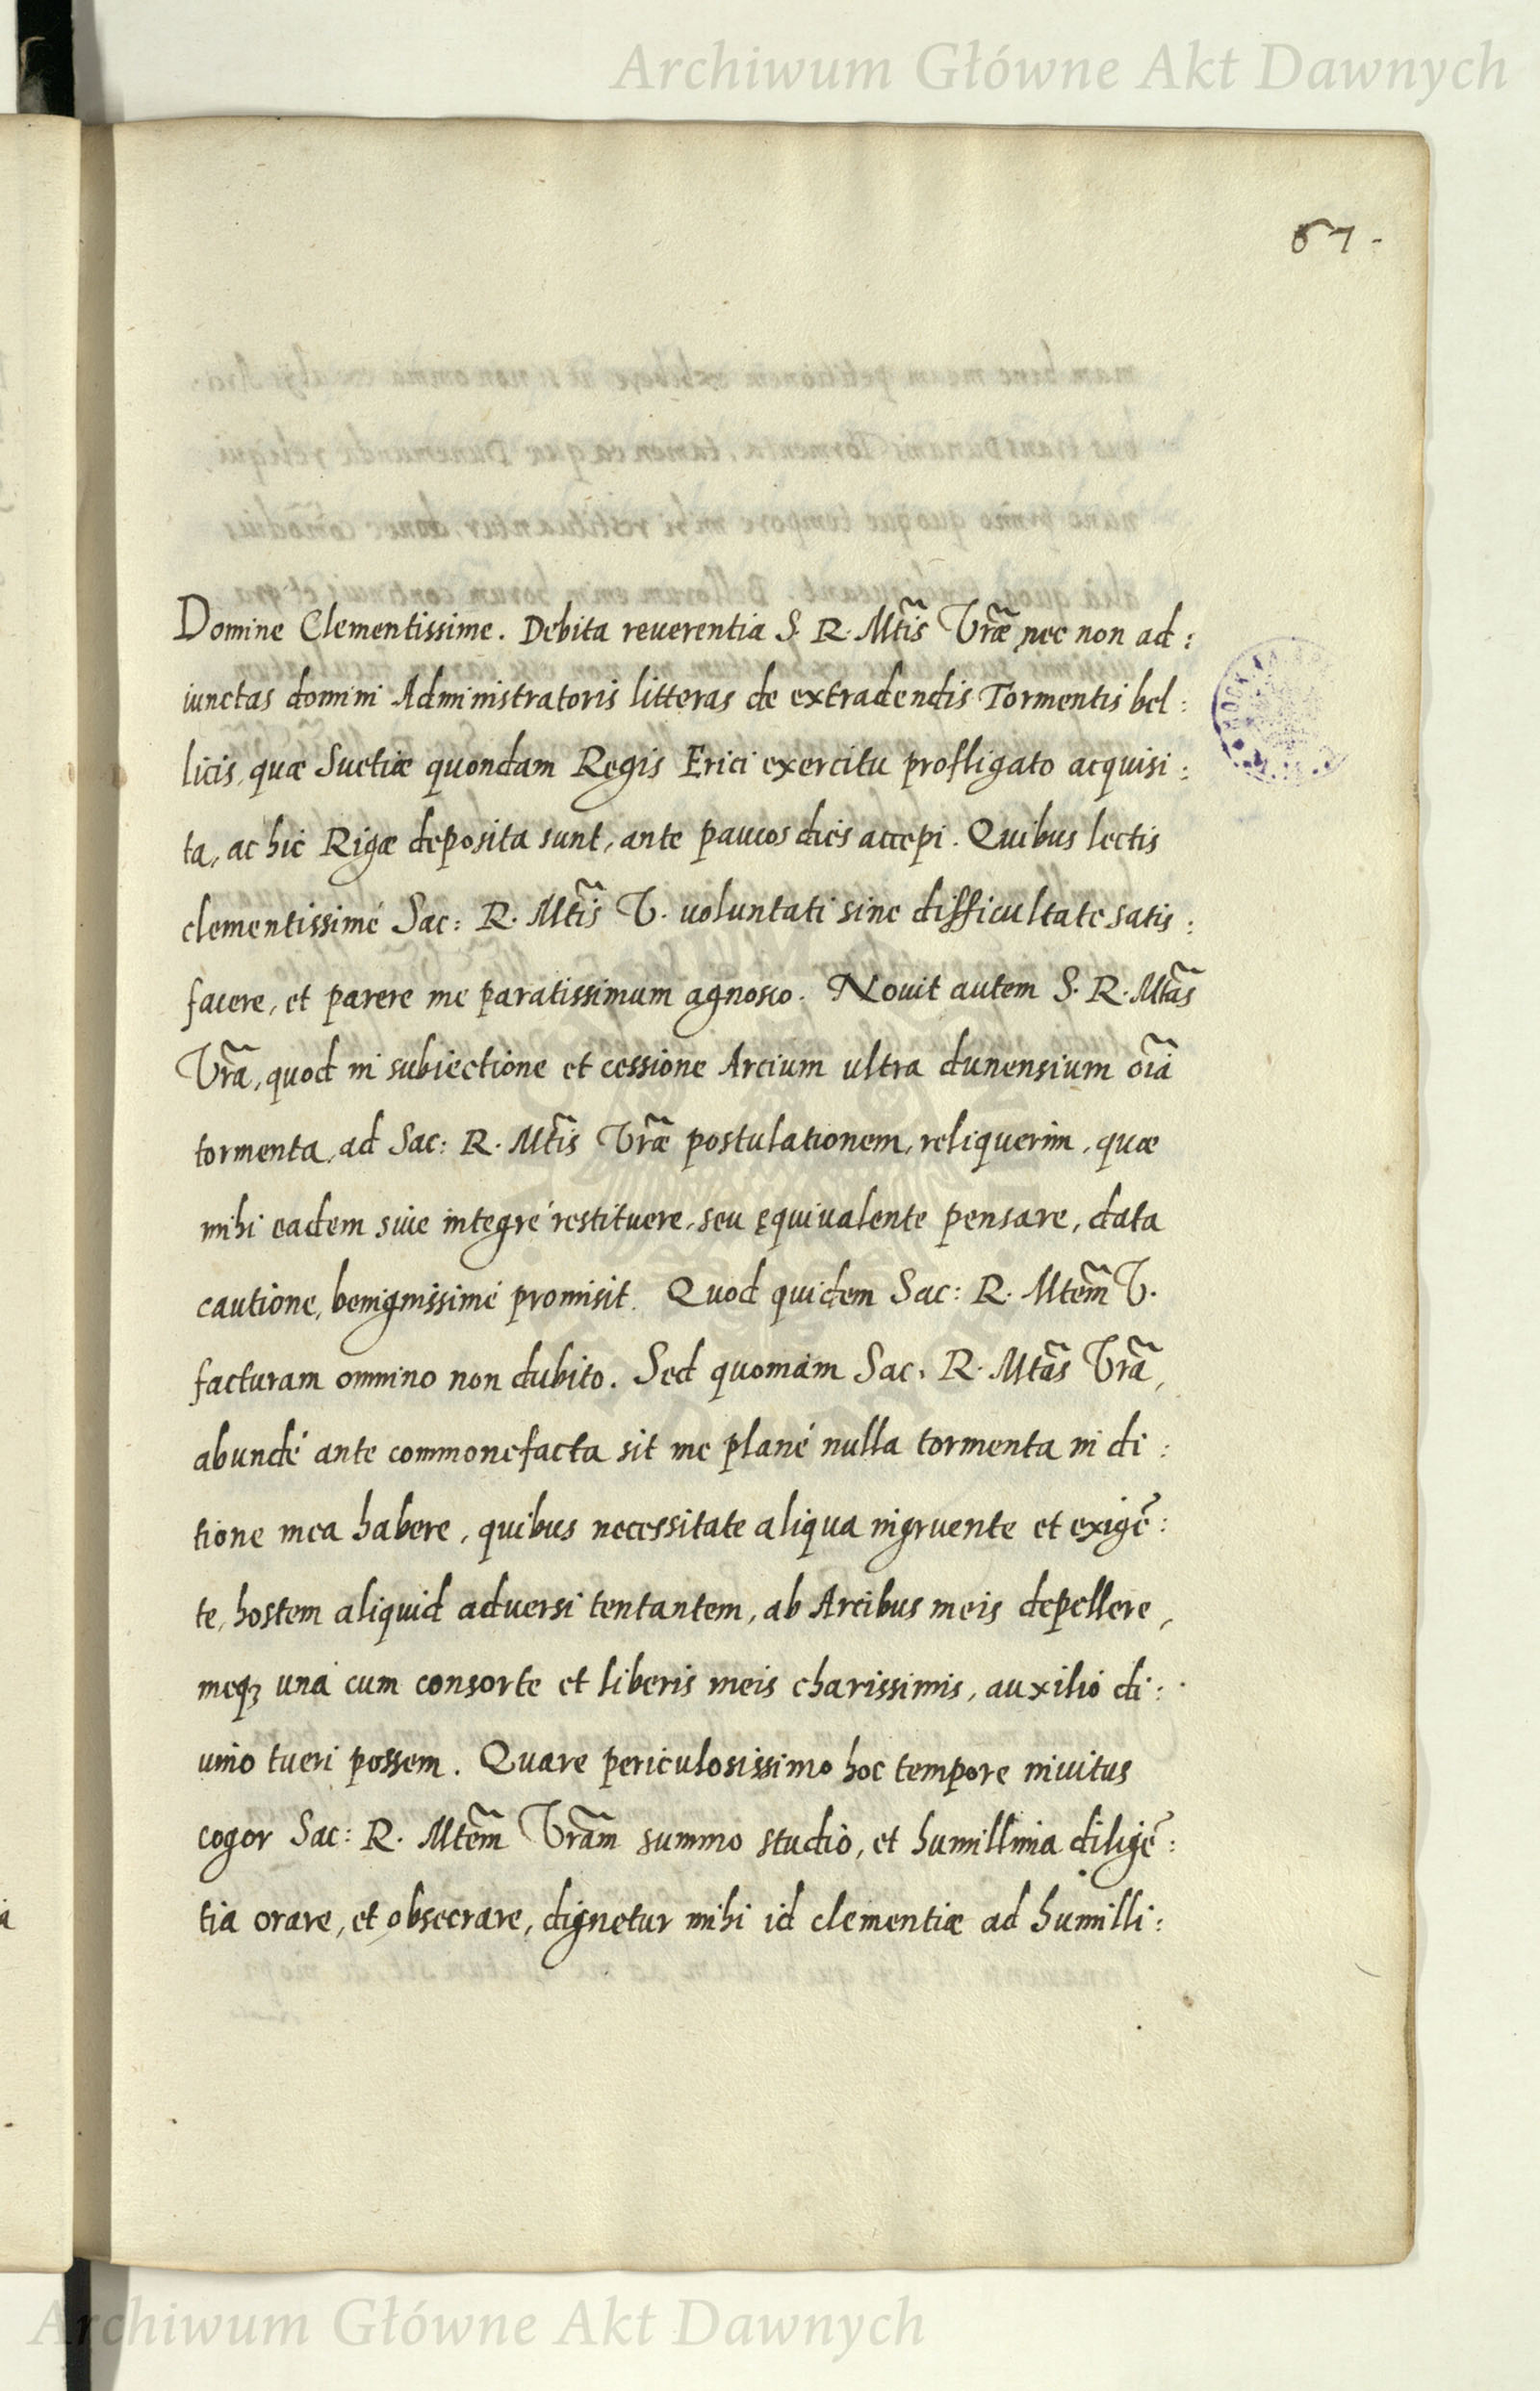 Archiwum Główne Akt Dawnych
67.
Domine Clementissime. Debita reuerentia S. R. Mtis Vræ nec non ad:
iunctas domini Administratoris litteras de extradendis Tormentis bel:
licis, quæ Suetiæ quondam Regis Erici exercitu profligato acquisi:
ta, ac hic Rigæ deposita sunt, ante paucos dies accepi. Quibus lectis
clementissimé Sac: R. Mtis V. uoluntati sine difficultate satis:
facere, et parere me paratissimum agnosco. Nouit autem S. R. Mtas
Vra, quod in subiectione et cessione Arcium ultra dunensium oia
tormenta, ad Sac: R. Mtis Vræ postulationem, reliquerim, quæ
mihi eadem siue integré restituere, seu ęquiualente pensare, data
cautione, benignissimé promisit. Quod quidem Sac: R. Mtem V.
facturam omnino non dubito. Sed quoniam Sac: R. Mtas Vra,
abundé ante commonefacta sit me plané nulla tormenta in di:
tione mea habere, quibus necessitate aliqua ingruente et exigē:
te, hostem aliquid aduersi tentantem, ab Arcibus meis depellere,
meqꝫ uná cum consorte et liberis meis charissimis, auxilio di:
uino tueri possem. Quare periculosissimo hoc tempore inuitus
cogor Sac: R. Mtem Vram summo studio, et humillima diligē:
tia orare, et obsecrare, dignetur mihi id clementiæ ad humilli:
Archiwum Główne Akt Dawnych